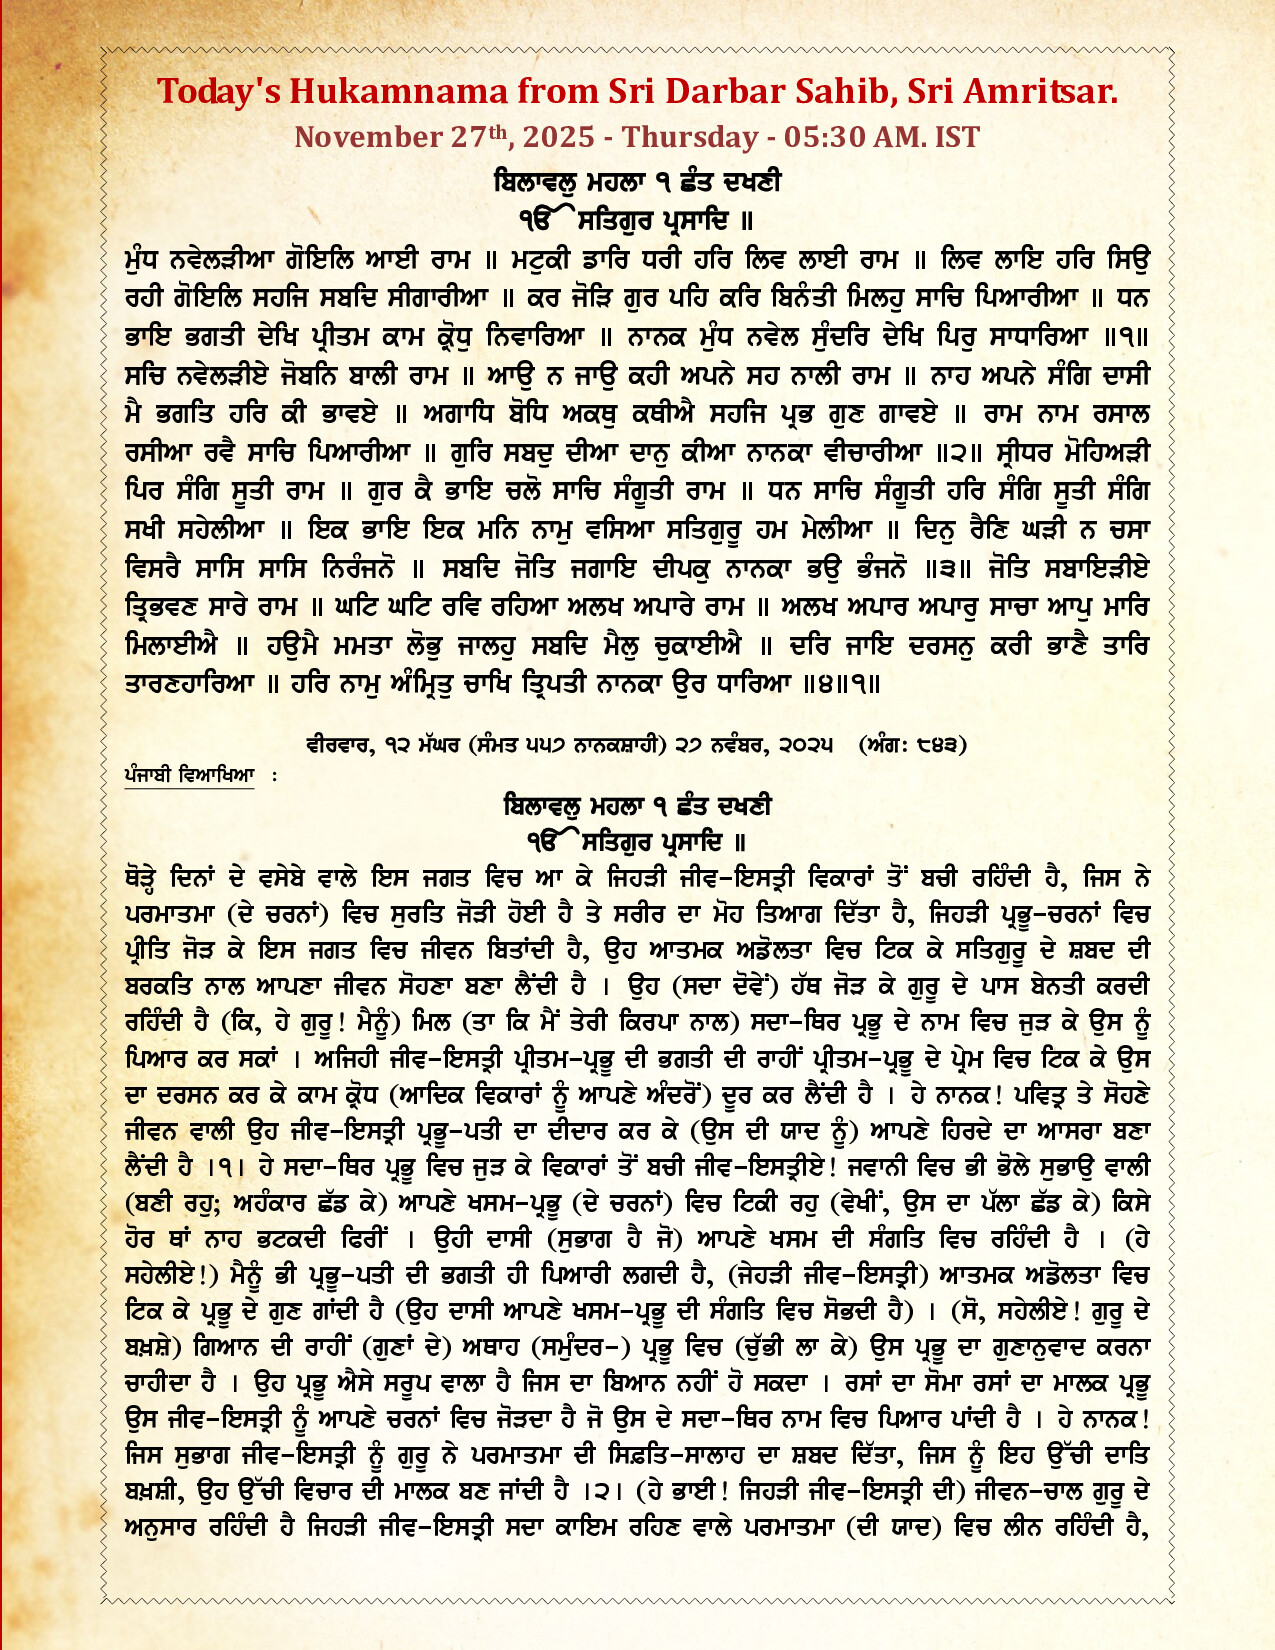 Today's Hukamnama from Sri Darbar Sahib, Sri Amritsar.
November 27th, 2025 - Thursday - 05:30 AM. IST
ਬਿਲਾਵਲੁ ਮਹਲਾ ੧ ਛੰਤ ਦਖਣੀ
ੴ ਸਤਿਗੁਰ ਪ੍ਰਸਾਦਿ ॥
ਮੁੰਧ ਨਵੇਲੜੀਆ ਗੋਇਲਿ ਆਈ ਰਾਮ ॥ ਮਟੁਕੀ ਡਾਰਿ ਧਰੀ ਹਰਿ ਲਿਵ ਲਾਈ ਰਾਮ ॥ ਲਿਵ ਲਾਇ ਹਰਿ ਸਿਉ
ਰਹੀ ਗੋਇਲਿ ਸਹਜਿ ਸਬਦਿ ਸੀਗਾਰੀਆ ॥ ਕਰ ਜੋੜਿ ਗੁਰ ਪਹਿ ਕਰਿ ਬਿਨੰਤੀ ਮਿਲਹੁ ਸਾਚਿ ਪਿਆਰੀਆ ॥ ਧਨ
ਭਾਇ ਭਗਤੀ ਦੇਖਿ ਪ੍ਰੀਤਮ ਕਾਮ ਕ੍ਰੋਧੁ ਨਿਵਾਰਿਆ ॥ ਨਾਨਕ ਮੁੰਧ ਨਵੇਲ ਸੁੰਦਰਿ ਦੇਖਿ ਪਿਰੁ ਸਾਧਾਰਿਆ ॥੧॥
ਸਚਿ ਨਵੇਲੜੀਏ ਜੋਬਨਿ ਬਾਲੀ ਰਾਮ ॥ ਆਉ ਨ ਜਾਉ ਕਹੀ ਅਪਨੇ ਸਹ ਨਾਲੀ ਰਾਮ ॥ ਨਾਹ ਅਪਨੇ ਸੰਗਿ ਦਾਸੀ
ਮੈ ਭਗਤਿ ਹਰਿ ਕੀ ਭਾਵਏ ॥ ਅਗਾਧਿ ਬੋਧਿ ਅਕਥੁ ਕਥੀਐ ਸਹਜਿ ਪ੍ਰਭ ਗੁਣ ਗਾਵਏ ॥ ਰਾਮ ਨਾਮ ਰਸਾਲ
ਰਸੀਆ ਰਵੈ ਸਾਚਿ ਪਿਆਰੀਆ ॥ ਗੁਰਿ ਸਬਦੁ ਦੀਆ ਦਾਨੁ ਕੀਆ ਨਾਨਕਾ ਵੀਚਾਰੀਆ ॥੨॥ ਸ੍ਰੀਧਰ ਮੋਹਿਅੜੀ
ਪਿਰ ਸੰਗਿ ਸੂਤੀ ਰਾਮ ॥ ਗੁਰ ਕੈ ਭਾਇ ਚਲੋ ਸਾਚਿ ਸੰਗੂਤੀ ਰਾਮ ॥ ਧਨ ਸਾਚਿ ਸੰਗੂਤੀ ਹਰਿ ਸੰਗਿ ਸੂਤੀ ਸੰਗਿ
ਸਖੀ ਸਹੇਲੀਆ ॥ ਇਕ ਭਾਇ ਇਕ ਮਨਿ ਨਾਮੁ ਵਸਿਆ ਸਤਿਗੁਰੂ ਹਮ ਮੇਲੀਆ ॥ ਦਿਨੁ ਰੈਣਿ ਘੜੀ ਨ ਚਸਾ
ਵਿਸਰੈ ਸਾਸਿ ਸਾਸਿ ਨਿਰੰਜਨੋ ॥ ਸਬਦਿ ਜੋਤਿ ਜਗਾਇ ਦੀਪਕੁ ਨਾਨਕਾ ਭਉ ਭੰਜਨੋ ॥੩॥ ਜੋਤਿ ਸਬਾਇੜੀਏ
ਤ੍ਰਿਭਵਣ ਸਾਰੇ ਰਾਮ ॥ ਘਟਿ ਘਟਿ ਰਵਿ ਰਹਿਆ ਅਲਖ ਅਪਾਰੇ ਰਾਮ ॥ ਅਲਖ ਅਪਾਰ ਅਪਾਰੁ ਸਾਚਾ ਆਪੁ ਮਾਰਿ
ਮਿਲਾਈਐ ॥ ਹਉਮੈ ਮਮਤਾ ਲੋਭੁ ਜਾਲਹੁ ਸਬਦਿ ਮੈਲੁ ਚੁਕਾਈਐ ॥ ਦਰਿ ਜਾਇ ਦਰਸਨੁ ਕਰੀ ਭਾਣੈ ਤਾਰਿ
ਤਾਰਣਹਾਰਿਆ ॥ ਹਰਿ ਨਾਮੁ ਅੰਮ੍ਰਿਤੁ ਚਾਖਿ ਤ੍ਰਿਪਤੀ ਨਾਨਕਾ ਉਰ ਧਾਰਿਆ ॥੪॥੧॥
ਵੀਰਵਾਰ, ੧੨ ਮੱਘਰ (ਸੰਮਤ ੫੫੭ ਨਾਨਕਸ਼ਾਹੀ) ੨੭ ਨਵੰਬਰ, ੨੦੨੫ (ਅੰਗ: ੮੪੩)
ਪੰਜਾਬੀ ਵਿਆਖਿਆ :
ਬਿਲਾਵਲੁ ਮਹਲਾ ੧ ਛੰਤ ਦਖਣੀ
ੴ ਸਤਿਗੁਰ ਪ੍ਰਸਾਦਿ ॥
ਥੋੜ੍ਹੇ ਦਿਨਾਂ ਦੇ ਵਸੇਬੇ ਵਾਲੇ ਇਸ ਜਗਤ ਵਿਚ ਆ ਕੇ ਜਿਹੜੀ ਜੀਵ-ਇਸਤ੍ਰੀ ਵਿਕਾਰਾਂ ਤੋਂ ਬਚੀ ਰਹਿੰਦੀ ਹੈ, ਜਿਸ ਨੇ
ਪਰਮਾਤਮਾ (ਦੇ ਚਰਨਾਂ) ਵਿਚ ਸੁਰਤਿ ਜੋੜੀ ਹੋਈ ਹੈ ਤੇ ਸਰੀਰ ਦਾ ਮੋਹ ਤਿਆਗ ਦਿੱਤਾ ਹੈ, ਜਿਹੜੀ ਪ੍ਰਭੂ-ਚਰਨਾਂ ਵਿਚ
ਪ੍ਰੀਤਿ ਜੋੜ ਕੇ ਇਸ ਜਗਤ ਵਿਚ ਜੀਵਨ ਬਿਤਾਂਦੀ ਹੈ, ਉਹ ਆਤਮਕ ਅਡੋਲਤਾ ਵਿਚ ਟਿਕ ਕੇ ਸਤਿਗੁਰੂ ਦੇ ਸ਼ਬਦ ਦੀ
ਬਰਕਤਿ ਨਾਲ ਆਪਣਾ ਜੀਵਨ ਸੋਹਣਾ ਬਣਾ ਲੈਂਦੀ ਹੈ । ਉਹ (ਸਦਾ ਦੋਵੇਂ) ਹੱਥ ਜੋੜ ਕੇ ਗੁਰੂ ਦੇ ਪਾਸ ਬੇਨਤੀ ਕਰਦੀ
ਰਹਿੰਦੀ ਹੈ (ਕਿ, ਹੇ ਗੁਰੂ! ਮੈਨੂੰ) ਮਿਲ (ਤਾ ਕਿ ਮੈਂ ਤੇਰੀ ਕਿਰਪਾ ਨਾਲ) ਸਦਾ-ਥਿਰ ਪ੍ਰਭੂ ਦੇ ਨਾਮ ਵਿਚ ਜੁੜ ਕੇ ਉਸ ਨੂੰ
ਪਿਆਰ ਕਰ ਸਕਾਂ । ਅਜਿਹੀ ਜੀਵ-ਇਸਤ੍ਰੀ ਪ੍ਰੀਤਮ-ਪ੍ਰਭੂ ਦੀ ਭਗਤੀ ਦੀ ਰਾਹੀਂ ਪ੍ਰੀਤਮ-ਪ੍ਰਭੂ ਦੇ ਪ੍ਰੇਮ ਵਿਚ ਟਿਕ ਕੇ ਉਸ
ਦਾ ਦਰਸਨ ਕਰ ਕੇ ਕਾਮ ਕ੍ਰੋਧ (ਆਦਿਕ ਵਿਕਾਰਾਂ ਨੂੰ ਆਪਣੇ ਅੰਦਰੋਂ) ਦੂਰ ਕਰ ਲੈਂਦੀ ਹੈ । ਹੇ ਨਾਨਕ! ਪਵਿਤ੍ਰ ਤੇ ਸੋਹਣੇ
ਜੀਵਨ ਵਾਲੀ ਉਹ ਜੀਵ-ਇਸਤ੍ਰੀ ਪ੍ਰਭੂ-ਪਤੀ ਦਾ ਦੀਦਾਰ ਕਰ ਕੇ (ਉਸ ਦੀ ਯਾਦ ਨੂੰ) ਆਪਣੇ ਹਿਰਦੇ ਦਾ ਆਸਰਾ ਬਣਾ
ਲੈਂਦੀ ਹੈ ।੧। ਹੇ ਸਦਾ-ਥਿਰ ਪ੍ਰਭੂ ਵਿਚ ਜੁੜ ਕੇ ਵਿਕਾਰਾਂ ਤੋਂ ਬਚੀ ਜੀਵ-ਇਸਤ੍ਰੀਏ! ਜਵਾਨੀ ਵਿਚ ਭੀ ਭੋਲੇ ਸੁਭਾਉ ਵਾਲੀ
(ਬਣੀ ਰਹੁ; ਅਹੰਕਾਰ ਛੱਡ ਕੇ) ਆਪਣੇ ਖਸਮ-ਪ੍ਰਭੂ (ਦੇ ਚਰਨਾਂ) ਵਿਚ ਟਿਕੀ ਰਹੁ (ਵੇਖੀਂ, ਉਸ ਦਾ ਪੱਲਾ ਛੱਡ ਕੇ) ਕਿਸੇ
ਹੋਰ ਥਾਂ ਨਾਹ ਭਟਕਦੀ ਫਿਰੀਂ । ਉਹੀ ਦਾਸੀ (ਸੁਭਾਗ ਹੈ ਜੋ) ਆਪਣੇ ਖਸਮ ਦੀ ਸੰਗਤਿ ਵਿਚ ਰਹਿੰਦੀ ਹੈ । (ਹੇ
ਸਹੇਲੀਏ!) ਮੈਨੂੰ ਭੀ ਪ੍ਰਭੂ-ਪਤੀ ਦੀ ਭਗਤੀ ਹੀ ਪਿਆਰੀ ਲਗਦੀ ਹੈ, (ਜੇਹੜੀ ਜੀਵ-ਇਸਤ੍ਰੀ) ਆਤਮਕ ਅਡੋਲਤਾ ਵਿਚ
ਟਿਕ ਕੇ ਪ੍ਰਭੂ ਦੇ ਗੁਣ ਗਾਂਦੀ ਹੈ (ਉਹ ਦਾਸੀ ਆਪਣੇ ਖਸਮ-ਪ੍ਰਭੂ ਦੀ ਸੰਗਤਿ ਵਿਚ ਸੋਭਦੀ ਹੈ) । (ਸੋ, ਸਹੇਲੀਏ! ਗੁਰੂ ਦੇ
ਬਖ਼ਸ਼ੇ) ਗਿਆਨ ਦੀ ਰਾਹੀਂ (ਗੁਣਾਂ ਦੇ) ਅਥਾਹ (ਸਮੁੰਦਰ-) ਪ੍ਰਭੂ ਵਿਚ (ਚੁੱਭੀ ਲਾ ਕੇ) ਉਸ ਪ੍ਰਭੂ ਦਾ ਗੁਣਾਨੁਵਾਦ ਕਰਨਾ
ਚਾਹੀਦਾ ਹੈ । ਉਹ ਪ੍ਰਭੂ ਐਸੇ ਸਰੂਪ ਵਾਲਾ ਹੈ ਜਿਸ ਦਾ ਬਿਆਨ ਨਹੀਂ ਹੋ ਸਕਦਾ । ਰਸਾਂ ਦਾ ਸੋਮਾ ਰਸਾਂ ਦਾ ਮਾਲਕ ਪ੍ਰਭੂ
ਉਸ ਜੀਵ-ਇਸਤ੍ਰੀ ਨੂੰ ਆਪਣੇ ਚਰਨਾਂ ਵਿਚ ਜੋੜਦਾ ਹੈ ਜੋ ਉਸ ਦੇ ਸਦਾ-ਥਿਰ ਨਾਮ ਵਿਚ ਪਿਆਰ ਪਾਂਦੀ ਹੈ । ਹੇ ਨਾਨਕ!
ਜਿਸ ਸੁਭਾਗ ਜੀਵ-ਇਸਤ੍ਰੀ ਨੂੰ ਗੁਰੂ ਨੇ ਪਰਮਾਤਮਾ ਦੀ ਸਿਫ਼ਤਿ-ਸਾਲਾਹ ਦਾ ਸ਼ਬਦ ਦਿੱਤਾ, ਜਿਸ ਨੂੰ ਇਹ ਉੱਚੀ ਦਾਤਿ
ਬਖ਼ਸ਼ੀ, ਉਹ ਉੱਚੀ ਵਿਚਾਰ ਦੀ ਮਾਲਕ ਬਣ ਜਾਂਦੀ ਹੈ ।੨। (ਹੇ ਭਾਈ! ਜਿਹੜੀ ਜੀਵ-ਇਸਤ੍ਰੀ ਦੀ) ਜੀਵਨ-ਚਾਲ ਗੁਰੂ ਦੇ
ਅਨੁਸਾਰ ਰਹਿੰਦੀ ਹੈ ਜਿਹੜੀ ਜੀਵ-ਇਸਤ੍ਰੀ ਸਦਾ ਕਾਇਮ ਰਹਿਣ ਵਾਲੇ ਪਰਮਾਤਮਾ (ਦੀ ਯਾਦ) ਵਿਚ ਲੀਨ ਰਹਿੰਦੀ ਹੈ,